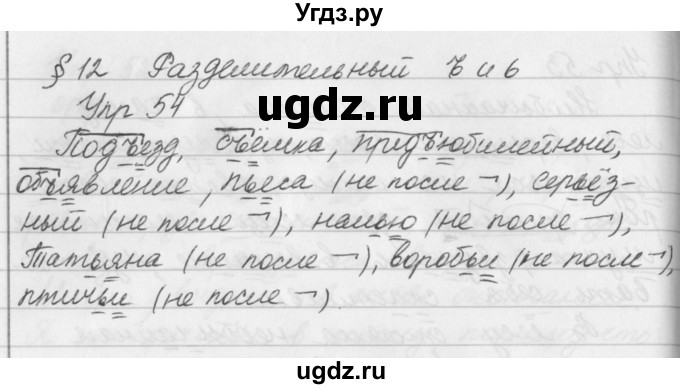 Угдз.ру
§ 12 Разделительный ъ и ь
Упр 54
ugdz.ru
Подъезд, съёмка, предъюбилейный,
объявление, пьеса (не после ¬), серьёз-
ный (не после ¬), налью (не после ¬),
Татьяна (не после ¬), воробьи (не после ¬),
птичьи (не после ¬).
ugdz.ru